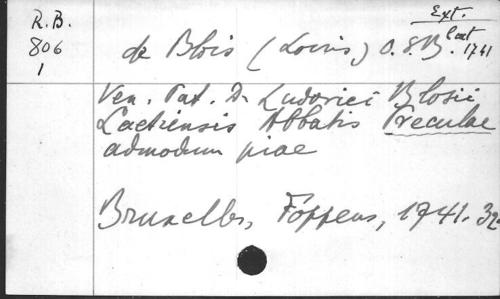 R.B.
806
1
Ext.
Lat.
1741
de Blois (Louis) O.S.B.
Ven. Pat. D. Ludovici Blosii
Laetiensis Abbatis Preculae
admodum piae
Bruxelles, Foppens, 1741. 32°